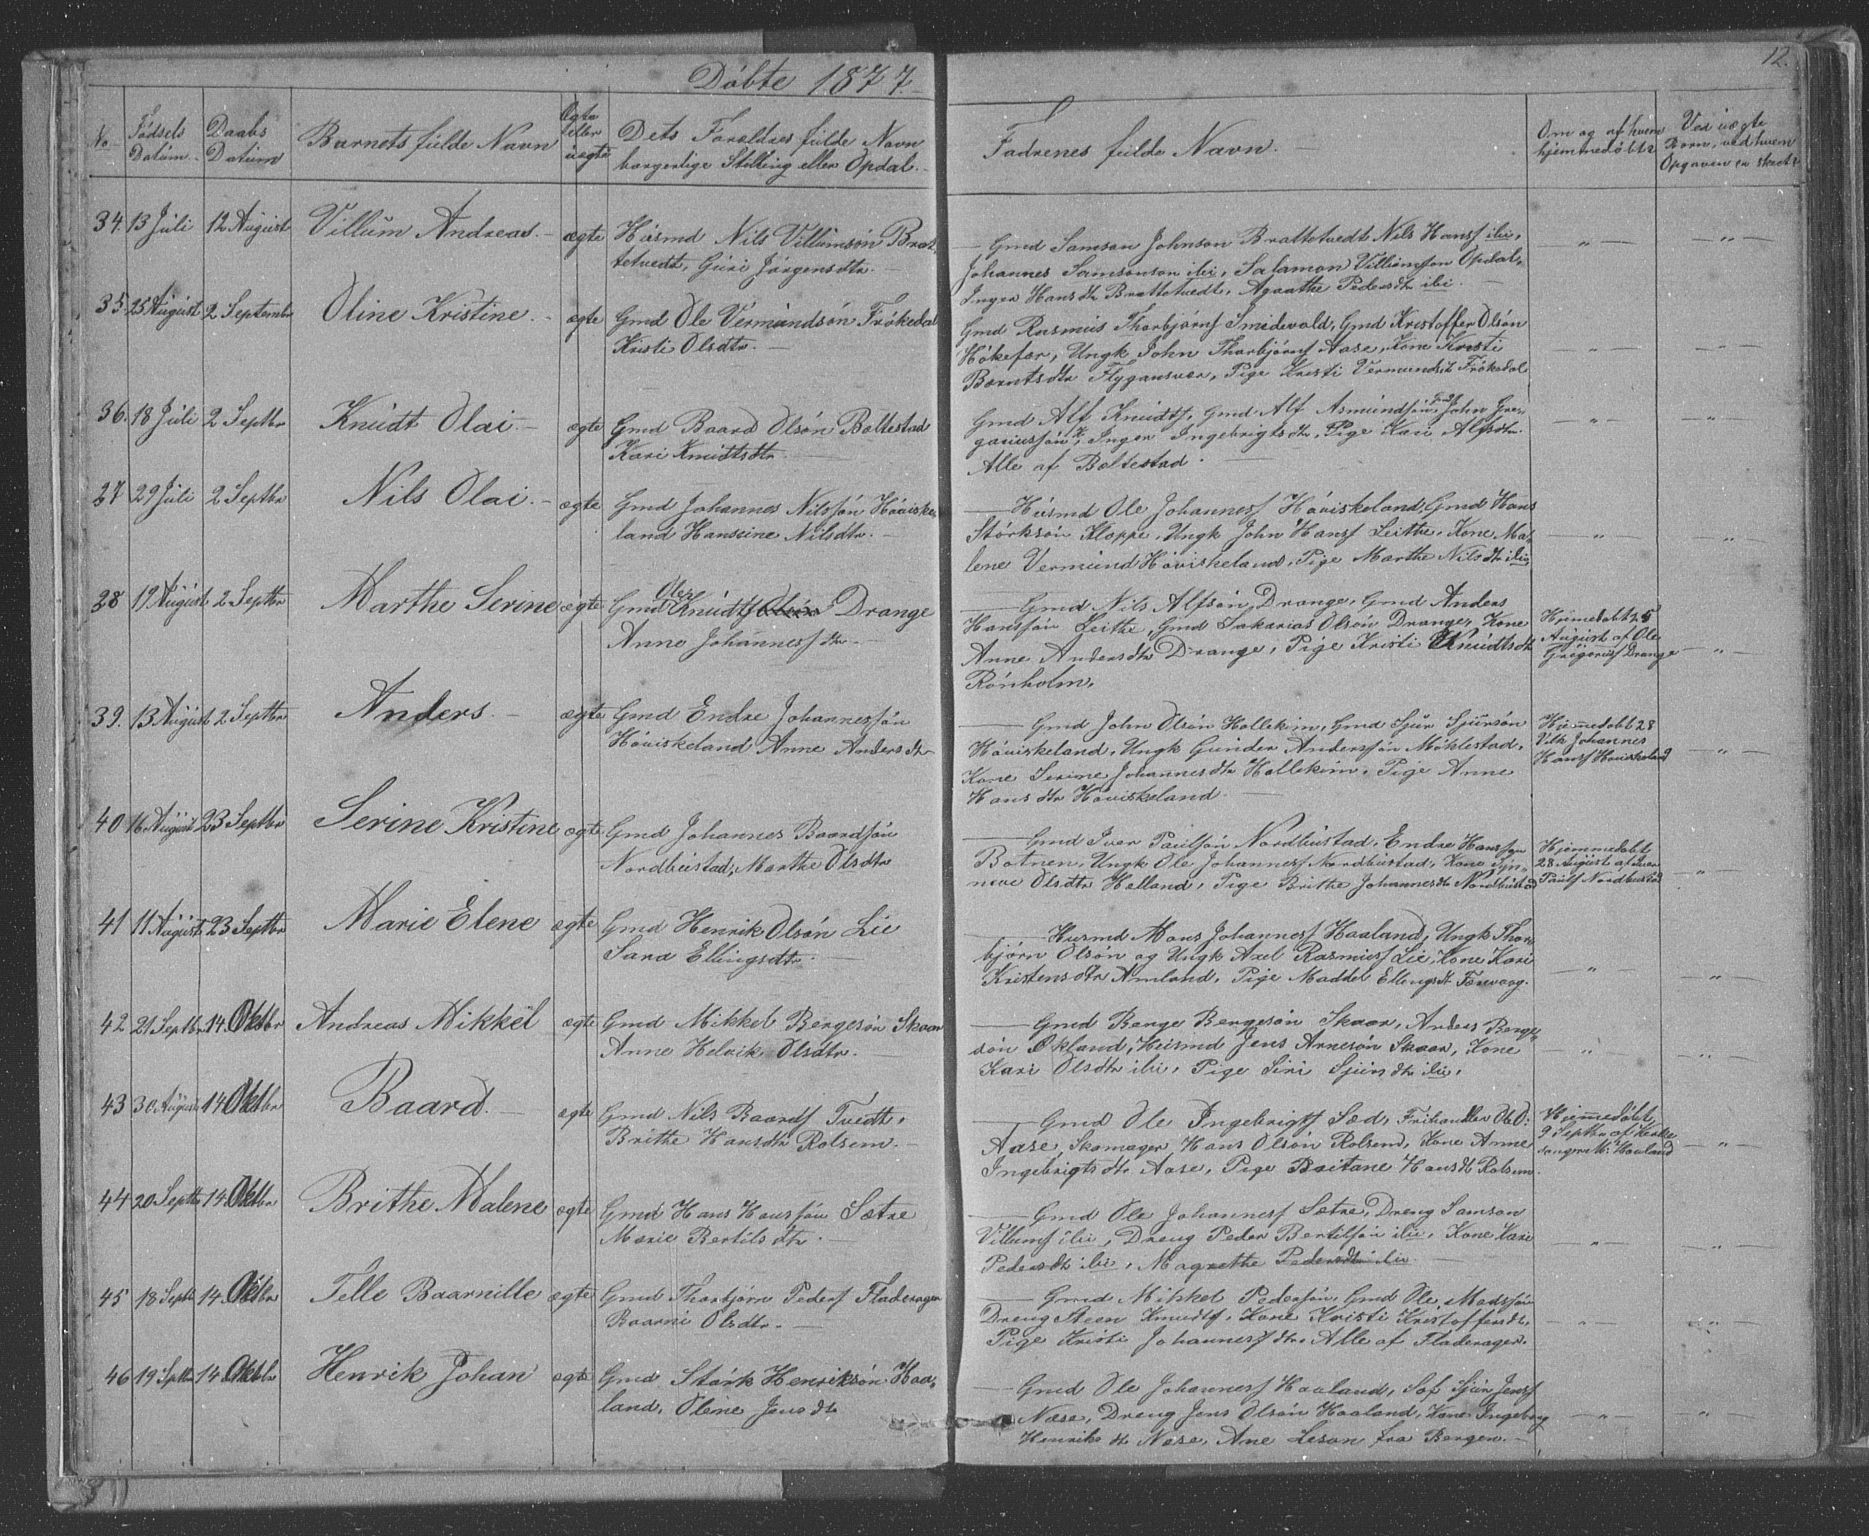 Döbte 1877.
12.
No
Födsels
Datum.
Daabs
Datum
Barnets fulde Navn
Ægte
eller
uægte
Dets Foreldres fulde Navn
borgerlige Stilling eller Opdal.
Fadrenes fulde Navn.
Om og af hvem
hjemmedöbt
Ved uægte
Born, ved hvem
Opgaven er skeet
34. 13 Juli 12 August Villum Andreas. ægte Husmd Nils Villumsön Brat-
tetvedt, Guri Jörgensdtr.
Gmd Samson Johnson Brattetvedt Nils Hansf ibi,
Johannes Samsonson ibi, Salamon Villumson Opdal,
Inger Hansdtr Brattetvedt, Agaathe Pedersdtr ibi.
35 25 August 2 Septembr Oline Kristine. ægte Gmd Ole Vermundsön Frökedal
Kristi Olsdtr.
Gmd Rasmus Thorbjörnf Smidevold, Gmd Kristoffer Olsön
Hökefær, Ungk John Thorbjörnf Aase, Kone Kristi
Berntsdtr Flygansvær, Pige Kristi Vermundsdt Frökedal
36. 18 Juli 2 Septbr Knudt Olai ægte Gmd Baard Olsön Boltestad
Kari Knudtsdtr.
Gmd Alf Knudtf, Gmd Alf Asmundsön, Gmd John Gre-
goriussön, K Inger Ingebrigtsdtr, Pige Kari Alfsdtr.
Alle af Boltestad.
27 29 Juli 2 Septbr Nils Olai. ægte Gmd Johannes Nilssön Höviske-
land Hanseine Nilsdtr.
Husmd Ole Johannesf Höviskeland, Gmd Hans
Störksön Kloppe, Ungk John Hansf Leithe, Kone Ma-
lene Vermund Höviskeland, Pige Marthe Nilsdtr ibi,
28 19 August 2 Septbr Marthe Serine ægte Gmd Ole Knudtf Drange
Anne Johannesf dtr
Gmd Nils Alfsön Drange, Gmd Anders
Hanssön Leithe, Gmd Sakarias Olsön Drange, Kone
Anne Andersdtr Drange, Pige Kristi Knudtsdtr
Rönholm.
Hjemedöbt 25
August af Ole
Gregoriusf Drange
39. 13 August 2 Septbr Anders. ægte Gmd Endre Johannessön
Höviskeland Anne Andersdtr
Gmd John Olsön Hollekim, Gmd Sjur Sjursön
Höviskeland, Ungk Gunder Anderssön Möklestad,
Kone Serine Johannesdtr Hollekim, Pige Anne
Hansdtr Höviskeland.
Hjemmedöbt 28
Johannes
Hansf Höviskeland
40 16 August 23 Septbr Serine Kristine ægte Gmd Johannes Baardsön
Nordbustad, Marthe Olsdtr
Gmd Iver Paulsön Nordbustad, Endre Hanssön
Botnen, Ungk Ole Johannesf Nordbustad, Kone Syn-
nove Olsdtr Helland, Pige Brithe Johannesdtr Nordbustad
Hjemmedöbt
28 August af Iver
Paulf Nordbustad
41 11 August 23 Septbr Marie Elene ægte Gmd Henrik Olsön Lie
Sara Ellingsdtr.
Husmd Mons Johannesf Haaland, Ungk Thor-
björn Olsön og Ungk Axel Rasmusf Lie, Kone Kari
Kristensdtr Amland, Pige Maddel Ellingsdt
42 21 Septbr 14 Oktbr Andreas Mikkel ægte Gmd Mikkel Bergesön Skaar
Anne Helvik Olsdtr.
Gmd Berge Bergesön Skaar, Anders Berge-
sön Økland, Husmd Jens Arnesön Skaar, Kone
Kari Olsdtr ibi, Pige Siri Sjursdtr ibi.
43 30 August 14 Oktbr Baard. ægte Gmd Nils Baardf Tvedt,
Brithe Hansdtr Rolsem.
Gmd Ole Ingebrigtf Sæd, Frihandler Ole O:
Aase, Skomager Hans Olsön Rolsem, Kone Anne
Ingebrigtsdtr Aase, Pige Britane Hansdt Rolsem.
Hjemmedöbt
9 Septbr af Kirke-
sanger M. Haaland
44 20 Septbr 14 Oktbr Brithe Malene ægte Gmd Hans Hanssön Sætre
Marie Bertilsdtr.
Gmd Ole Johannesf Sætre, Dreng Samson
Villumf ibi, Dreng Peder Bertilsön ibi, Kone Kari
Pedersdt ibi, Magrethe Pedersdtr ibi.
45 18 Septbr 14 Oktbr Telle Baarnille ægte Gmd Thorbjörn Pedersf Fladerager
Baarni Olsdtr.
Gmd Mikkel Pedersön, Gmd Ole Madssön
Dreng Steen Knudtf, Kone Kristi Kristoffersdt,
Pige Kristi Johannesf dtr. Alle af Fladerager.
46 19 Septbr 14 Oktbr Henrik Johan ægte Gmd Störk Henriksön Haa-
land, Olene Jensdtr
Gmd Ole Johannesf Haaland, Sjur Jensf
Næse, Dreng Jens Olsön Haaland, Kone Ingeborg
Henriksdt Næse, Ane Leson fra Bergen.